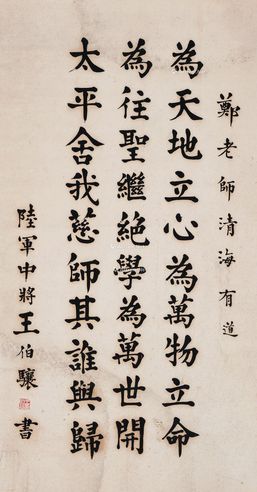 鄭老師清海有道
為天地立心為萬物立命
為住聖繼絕學為萬世開
太平舍我慈師其誰與歸
陸軍中將王伯驤書